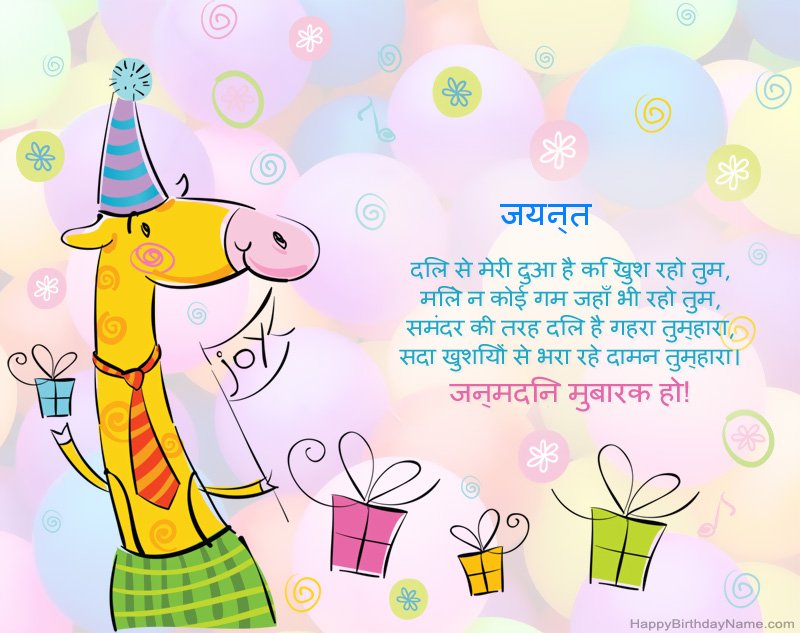 जयन्त
दिल से मेरी दुआ है कि खुश रहो तुम,
मिले न कोई गम जहाँ भी रहो तुम,
समंदर की तरह दिल है गहरा तुम्हारा,
सदा खुशियों से भरा रहे दामन तुम्हारा।
जन्मदिन मुबारक हो!
joy
HappyBirthdayName.com